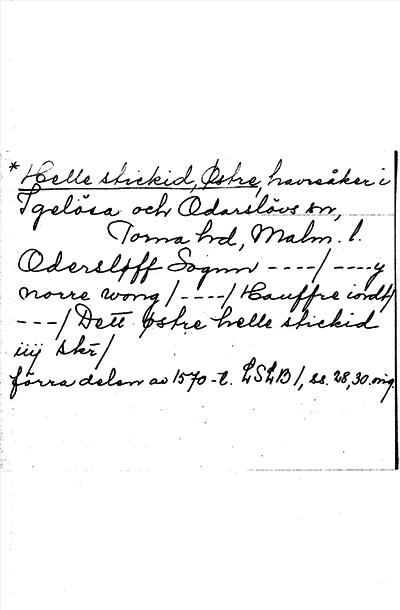 * Helle stickid, Østre, havreåker i
Igelösa och Odarslövs sn,
Torna hd, Malm. l.
Odersløff Sognn ----/ ----y
norre wong/ ----/ Hauffre iordt/
---/ Dett østre helle stickid
iiij skr/
förra delen av 1570-t. LSLB 1, ss. 28, 30. orig.